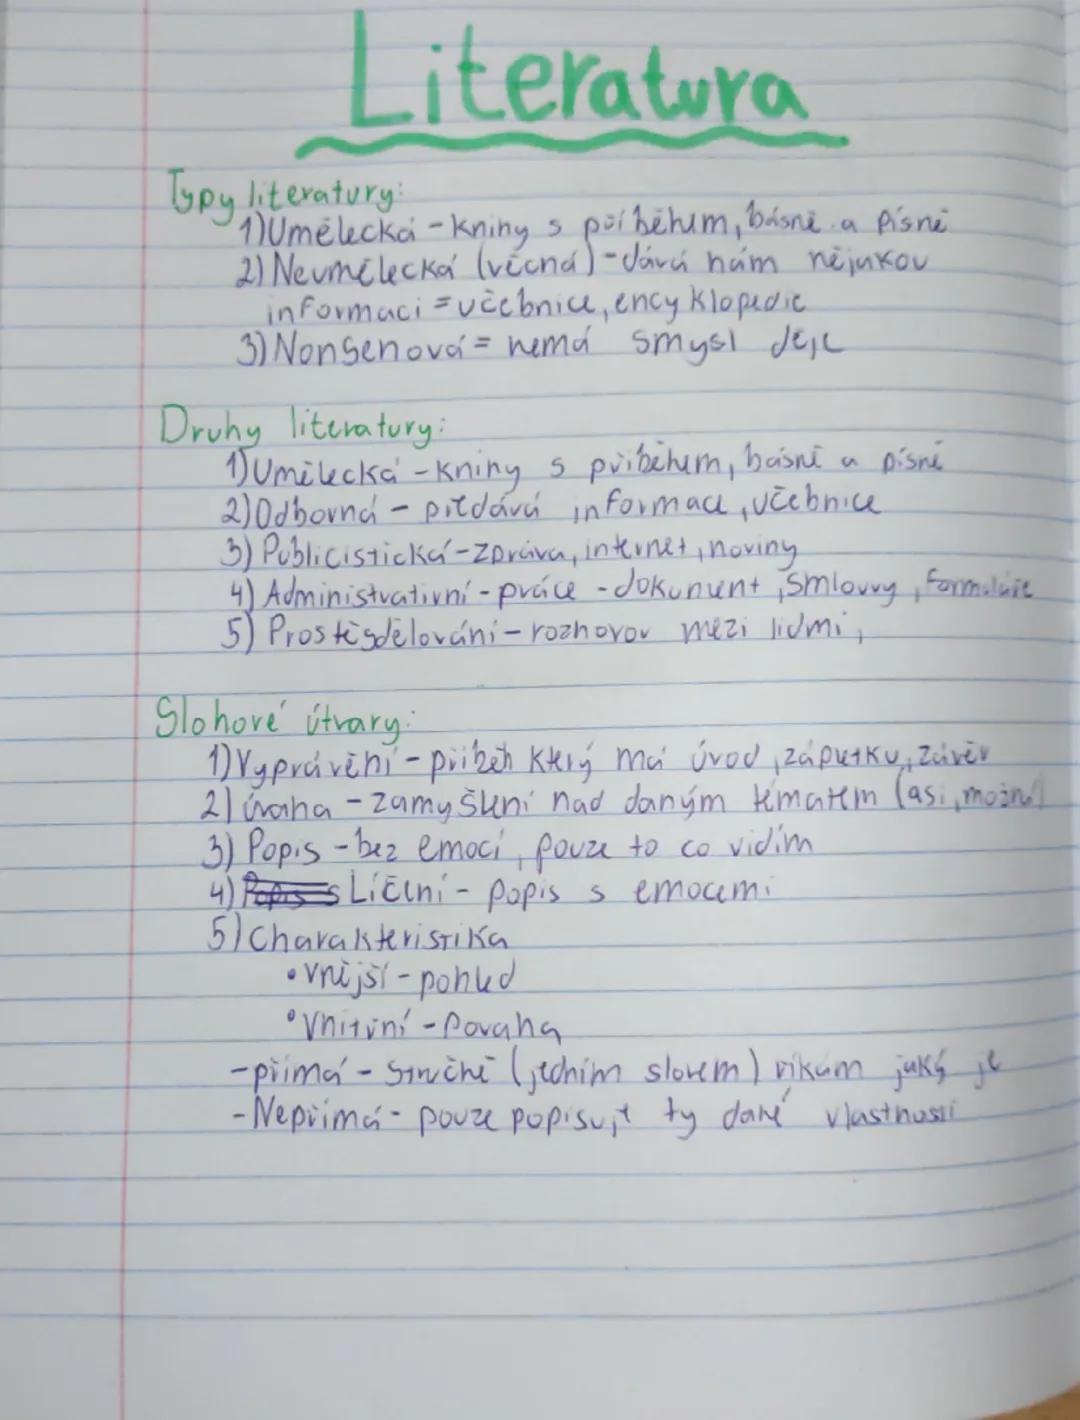 Literatura
Typy literatury:
1) Umělecká - kniny s příběhem, básně a písně
2) Neumělecká (věcná) - dává nám nějakou
informaci = učebnice, encyklopedie
3) Nonsenová = nemá smysl děje
Druhy literatury:
1) Umělecká - kniny s příběhem, básně a písně
2) Odborná - předává informace, učebnice
3) Publicistická - zpráva, internet, noviny
4) Administrativní - práce - dokunent, smlouvy, formuláře
5) Prostěsdělování - rozhovor mezi lidmi,
Slohové útvary:
1) Vyprávění - příběh který má úvod, zápletku, závěr
2) úvaha - zamyšlení nad daným tématem (asi, možná)
3) Popis - bez emocí, pouze to co vidím
4) Popis s Líčení - popis s emocemi
5) Charakteristika
• vnější - pohled
• Vnitřní - Povaha
- přímá - Stručně (jedním slovem) říkám jaký je
- Nepřímá - pouze popisuje ty dané vlastnosti